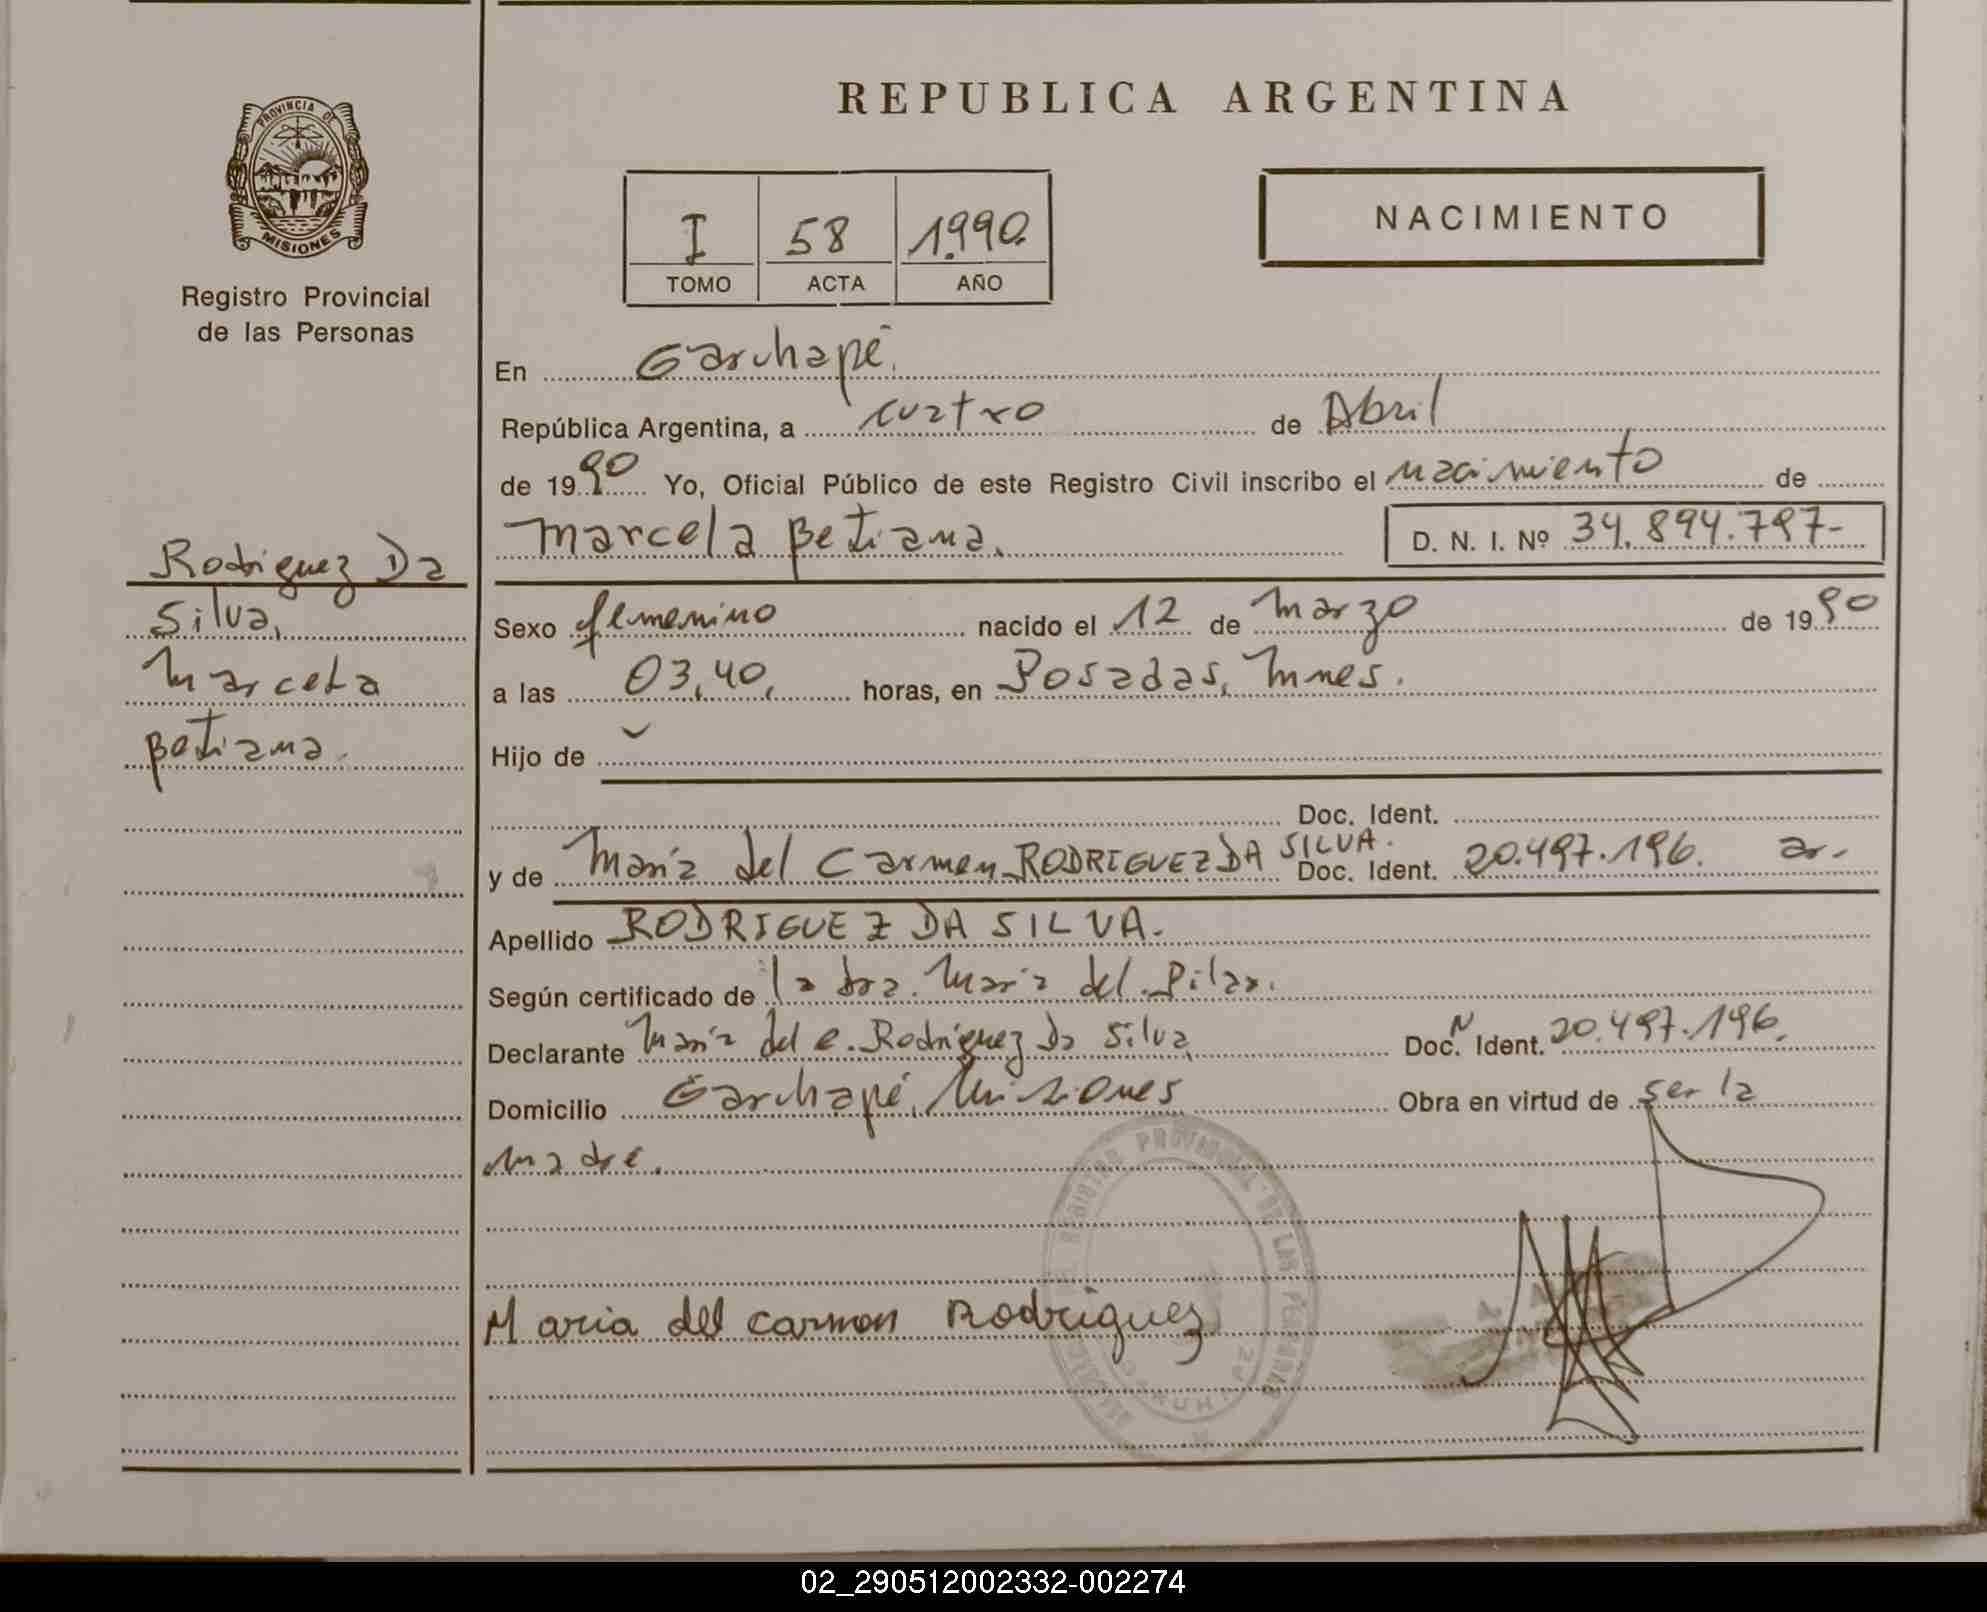 PROVINCIA DE
MISIONES
Registro Provincial
de las Personas
Rodriguez Da
Silva,
Marcela
Betiana.
REPUBLICA ARGENTINA
I 58 1.990.
TOMO ACTA AÑO
NACIMIENTO
En Garuhapé.
República Argentina, a cuatro de Abril
de 1990 Yo, Oficial Público de este Registro Civil inscribo el nacimiento de
Marcela Betiana. D. N. I. Nº 34.894.797-
Sexo femenino nacido el 12 de Marzo de 1990
a las 03,40, horas, en Posadas, Mnes.
Hijo de
Doc. Ident.
y de María del Carmen RODRIGUEZ DA SILVA. Doc. Ident. 20.497.196. ar.
Apellido RODRIGUEZ DA SILVA.
Según certificado de la dra. María del Pilar.
Declarante María del C. Rodriguez Da Silva Doc. N Ident. 20.497.196.
Domicilio Garuhapé, Misiones Obra en virtud de ser la
madre.
REGISTRO PROVINCIAL DE LAS PERSONAS
Maria del carmen Rodriguez
02_290512002332-002274